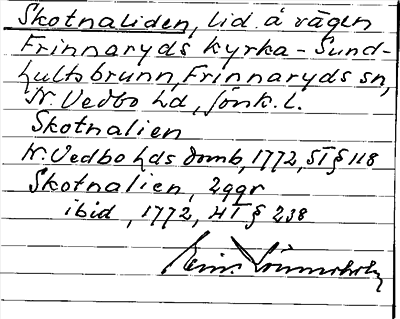 Skotnaliden, lid å vägen
Frinnaryds kyrka - Sund-
hultsbrunn, Frinnaryds sn,
N. Vedbo hd, Jönk. l.
Skotnalien
N. Vedbo hds domb, 1772, ST § 118
Skotnalien, 2ggr
ibid, 1772, HT § 238